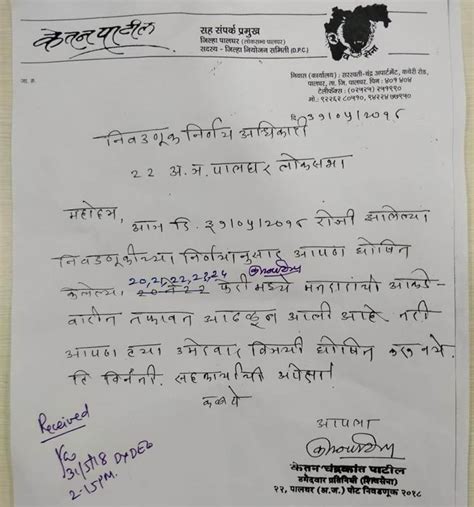 केतन पाटील
सह संपर्क प्रमुख
जिल्हा पालघर (लोकसभा पालघर)
सदस्य - जिल्हा नियोजन समिती (D.P.C)
सेना
निवास (कार्यालय) : सरस्वती-चंद्र अपार्टमेंट, कचेरी रोड,
पालघर, ता. जि. पालघर. पिन : ४०१ ४०४
जा. क्र.
दि ३१/०५/२०१८
निवडणूक निर्णय अधिकारी
22 अ.ज. पालघर लोकसभा
महोदय,
आज दि. ३१/०५/२०१८ रोजी झालेल्या
निवडणूकीच्या निर्णयानुसार आपण घोषित
20, 21, 22, 23, 24
केलेल्या, 20 ते 22 फेरी मध्ये मतदारांची आकडे-
वारीत तफावत आढळून आली आहे. तरी
आपण ह्या उमेदवार विजयी घोषित करू नये.
हि विनंती. सहकार्याची अपेक्षा.
कळावे
आपला
केतन चंद्रकांत पाटील
उमेदवार प्रतिनिधी (शिवसेना)
२२, पालघर (अ.ज.) पोट निवडणूक २०१८
Received
31/5/18
2.15PM.